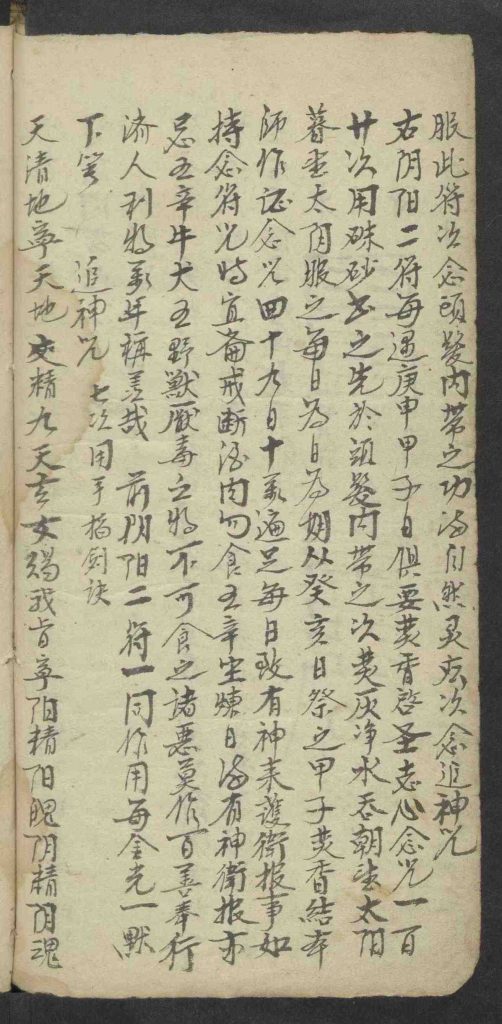 服此符次念頭髮内帶之功満自然灵应次念追神咒
右阴阳二符每遇庚申甲子日俱要焚香啓圣志心念咒一百
廿次用硃砂书之先於頭髮内帶之次焚灰净水吞朝望太阳
暮望太阴服之每日為日為期从癸亥日祭之甲子焚香結本
師作证念咒四十九日十萬遍足每日致有神来護衛报事如
持念符咒時宜齋戒断酒肉勿食五辛坐煉日满有神衛报亦
忌五辛牛犬五野獸厭毒之物不可食之諸恶莫作百善奉行
济人利物萬年稱善哉 前阴阳二符一同作用每金光一默
下笔 追神咒 七次用手掐剑诀
天清地寧天地交精九天玄女賜我旨寧阳精阳魄阴精阴魂